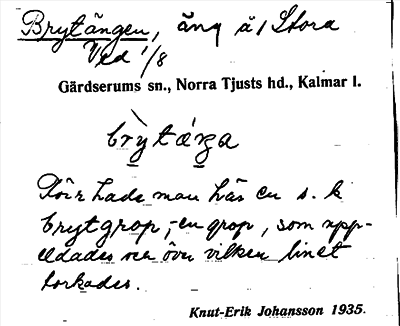 Brytängen, äng å 1 Stora
Ved 1/8
Gärdserums sn., Norra Tjusts hd., Kalmar l.
brỳtáŋa
Förr hade man här en s. k
brytgrop, en grop, som upp-
eldades och över vilken linet
torkades.
Knut-Erik Johansson 1935.